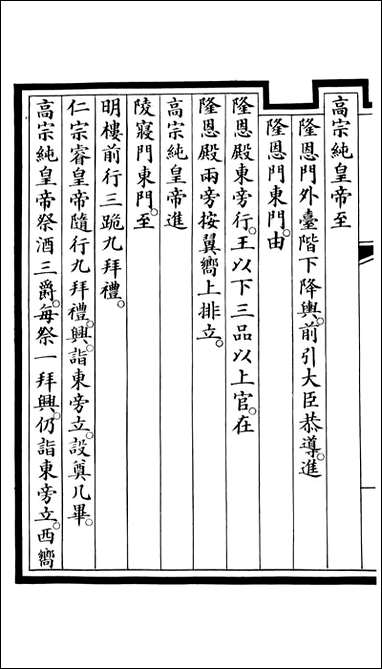 高宗純皇帝至
隆恩門外臺階下降輿。前引大臣恭導。進
隆恩門東門。由
隆恩殿東旁行。王以下三品以上官。在
隆恩殿兩旁按翼嚮上排立。
高宗純皇帝進
陵寢門東門。至
明樓前行三跪九拜禮。
仁宗睿皇帝隨行九拜禮。興。詣東旁立。設奠几畢。
高宗純皇帝祭酒三爵。每祭一拜興。仍詣東旁立。西嚮